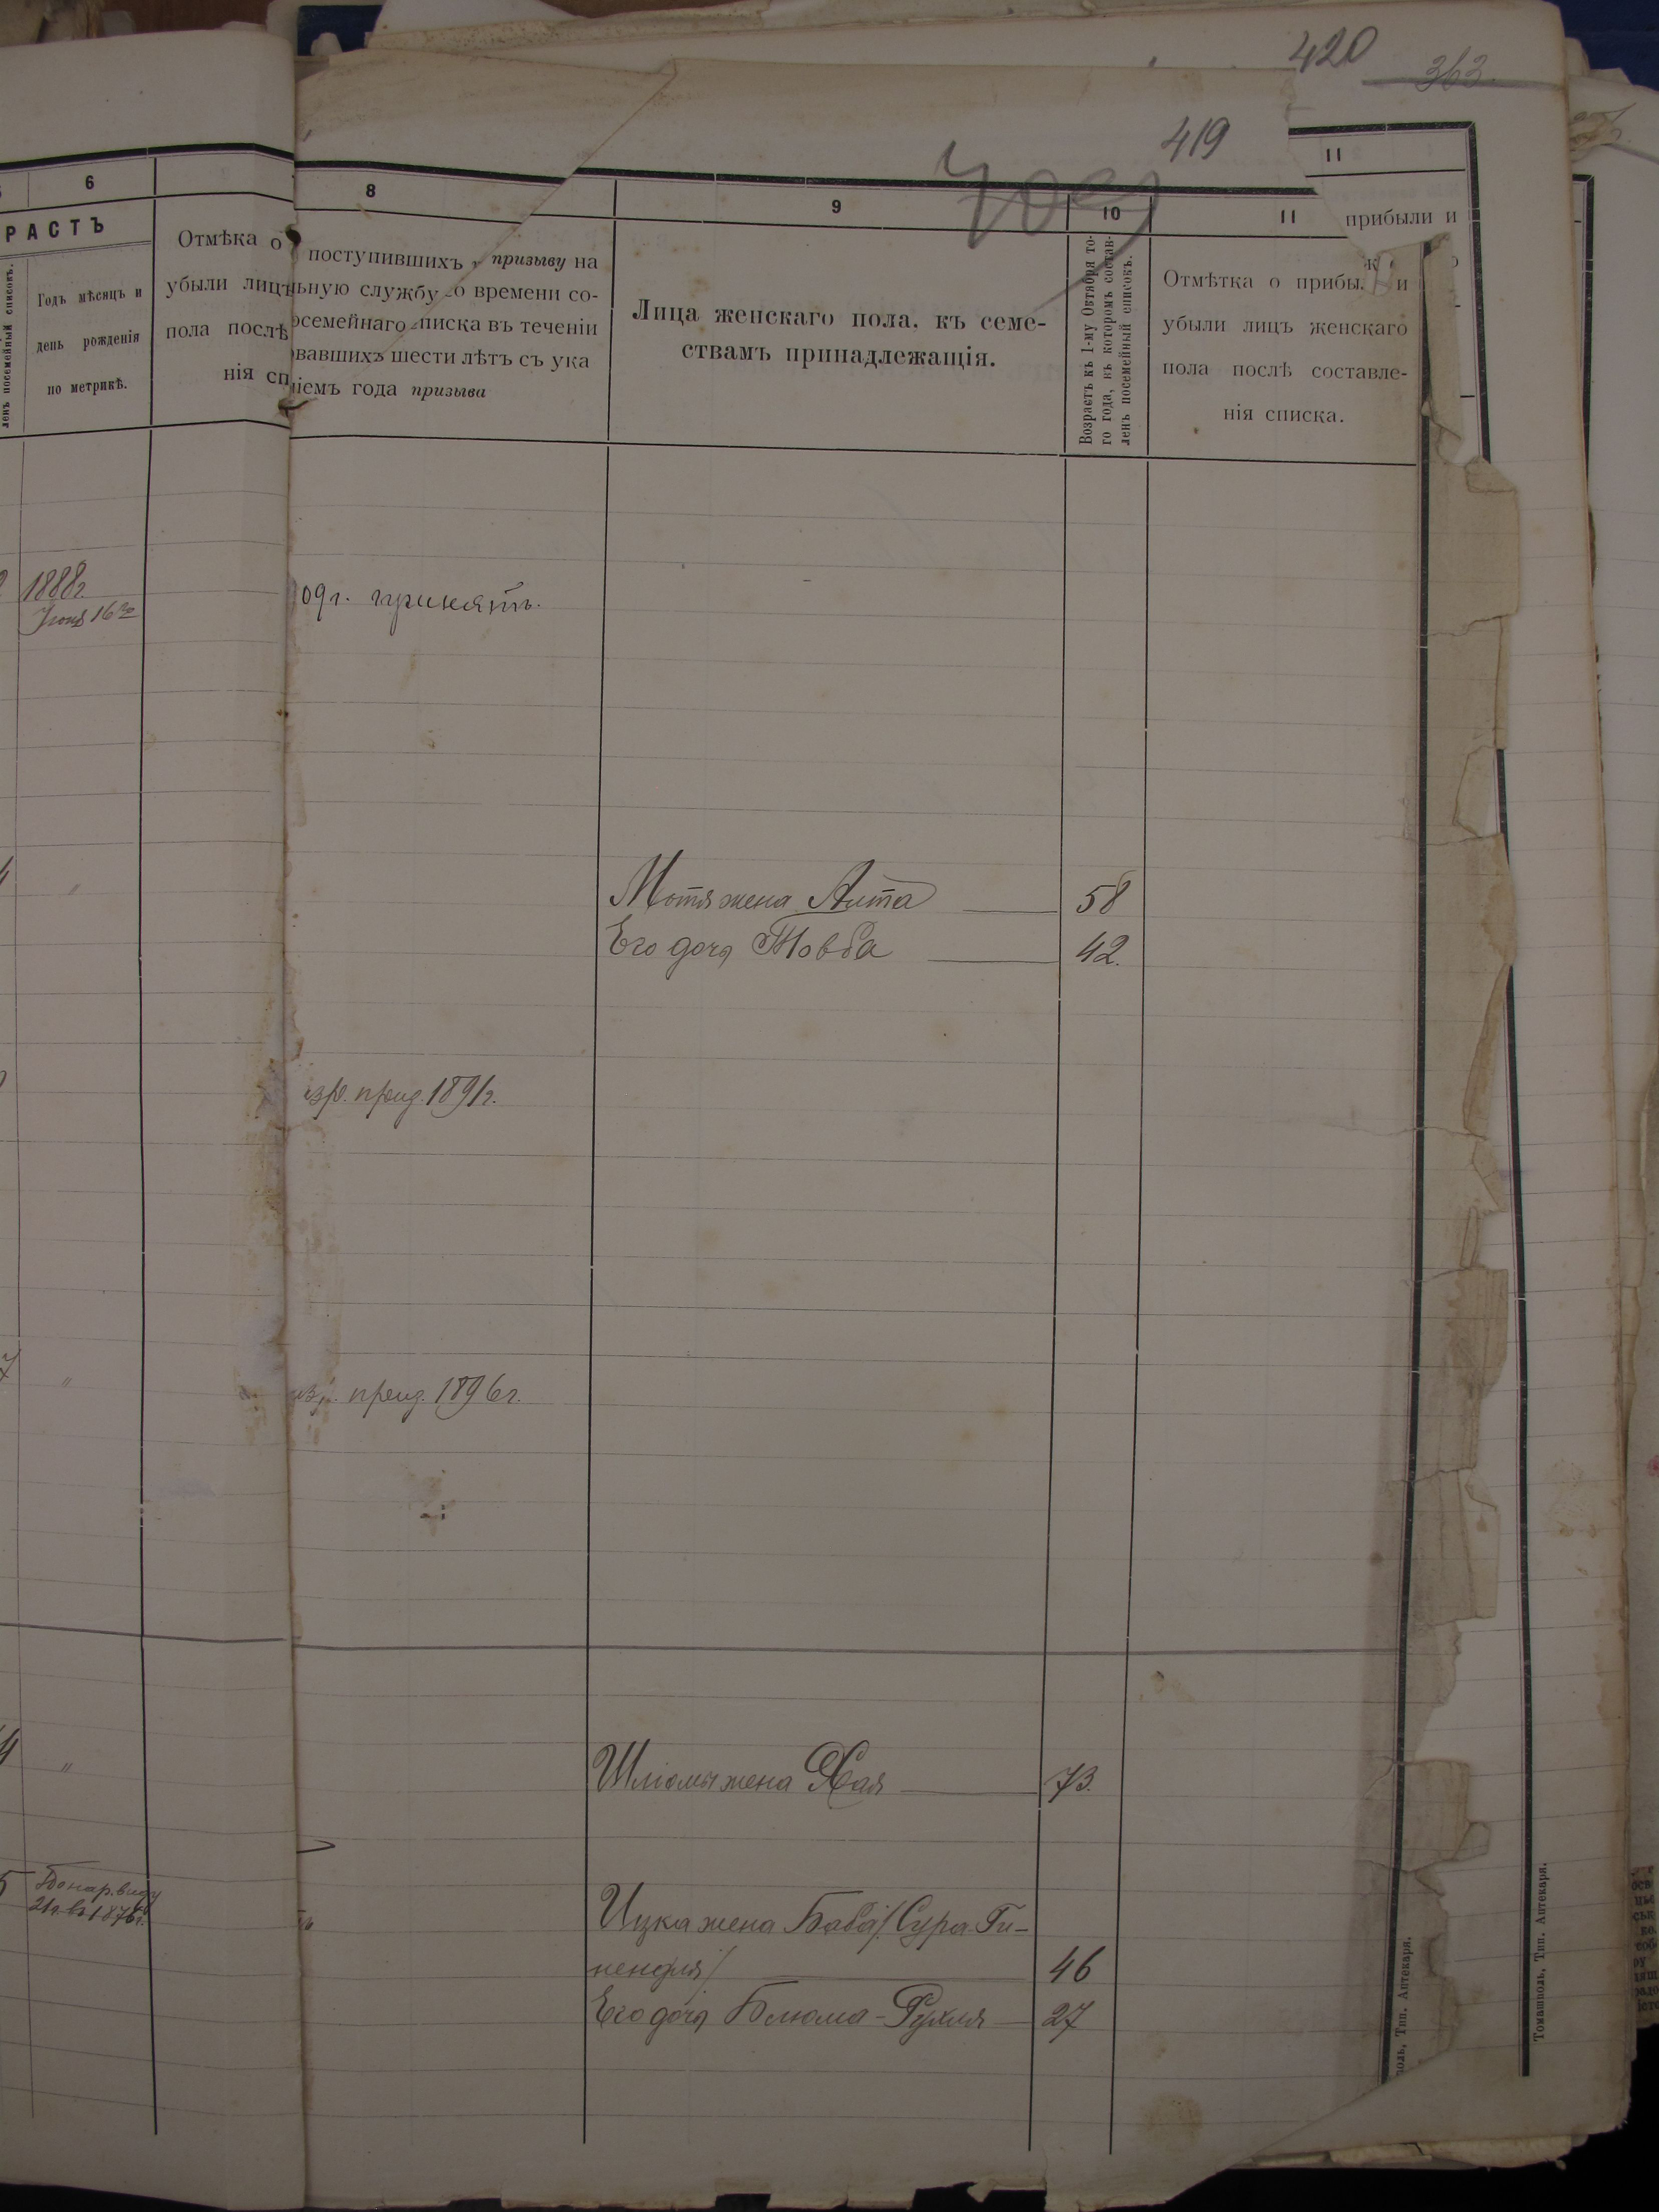 420
363.
419
6
8
9
10
11
11
РАСТЪ
Годъ мѣсяцъ и
день рожденія
по метрикѣ.
Отмѣка о
убыли лицъ
пола послѣ
нія сп
поступившихъ призыву на
ьную службу о времени со-
осемейнаго списка въ теченіи
вавшихъ шести лѣтъ съ ука
ніемъ года призыва
Лица женскаго пола, къ семе-
ствамъ принадлежащія.
Возрастъ къ 1-му Октября то-
го года, къ которомъ состав-
ленъ посемейный списокъ.
ленъ посемейный списокъ.
прибыли и
Отмѣтка о прибы. и
убыли лицъ женскаго
пола послѣ составле-
нія списка.
1888г.
16го
09г. принятъ.
Мотя жена Алта 58
Его дочь Товба 42.
1891г.
1896г.
Шліомы жена Хая 73.
21г. въ 1876г.
Ицка жена Баба /Сура-Ги-
нендля/ 46
Его дочь Блюма-Рухля 27
поль, Тип. Аптекаря.
Томашполь, Тип. Аптекаря.